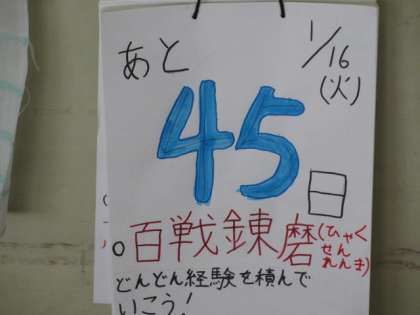 あと
1/16
(火)
45日
。百戦錬磨(ひゃく
せん
れんま)
どんどん経験を積んで
いこう!